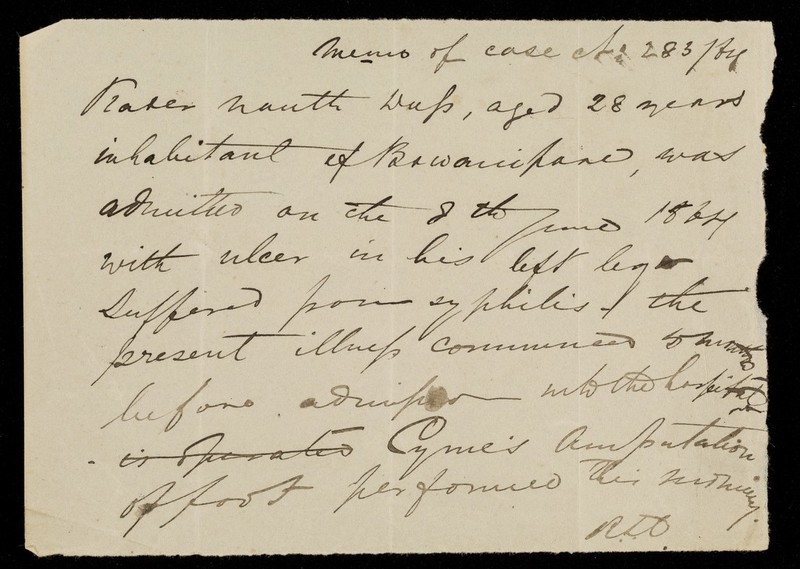 Memo of case No 283/64
Kader Nauth Dass, aged 28 years
inhabitant of Bowanipore, was
admitted on the 8th June 1864
with ulcer in his left leg
Suffered from syphilis & the
present illness commenced months
before admission into the hospital
is operated Cyme's Amputation
of foot performed this morning.